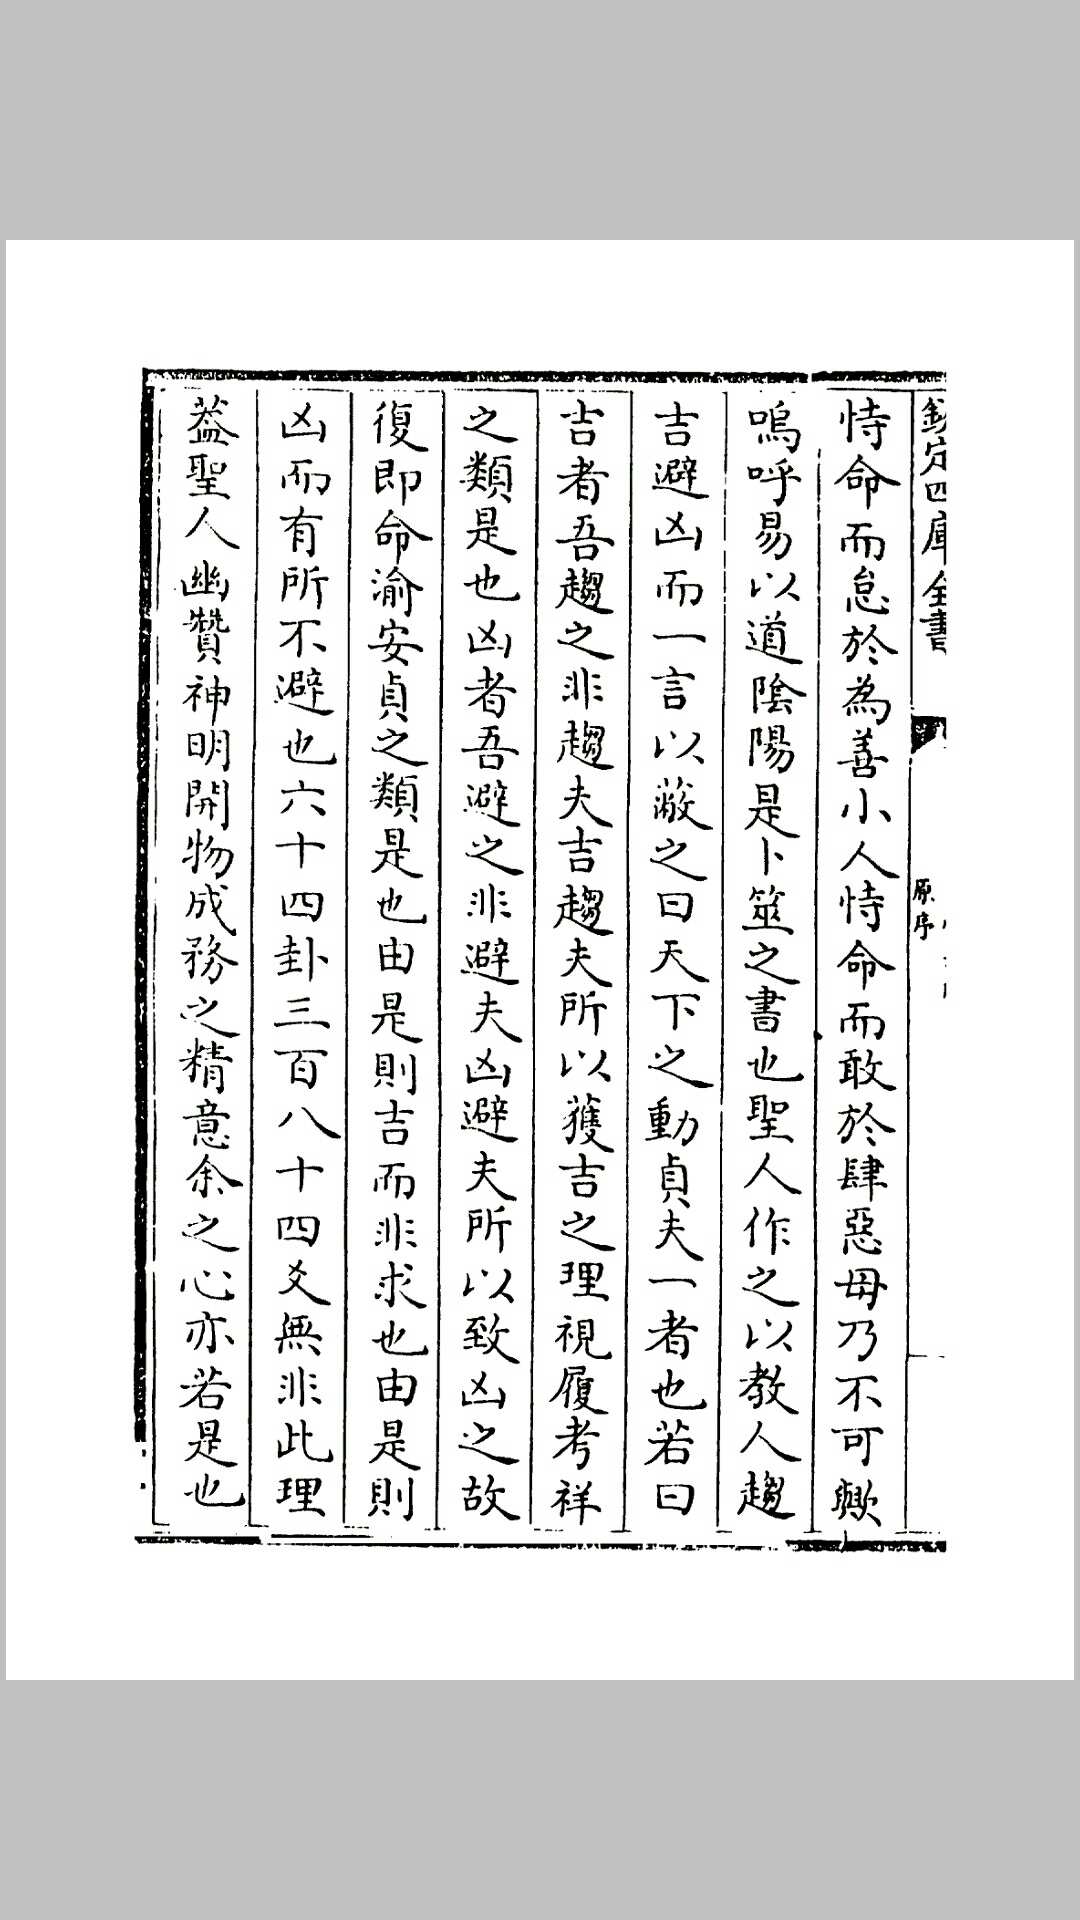 欽定四庫全書
原序
恃命而怠於為善小人恃命而敢於肆惡毋乃不可歟
嗚呼易以道陰陽是卜筮之書也聖人作之以教人趨
吉避凶而一言以蔽之曰天下之動貞夫一者也若曰
吉者吾趨之非趨夫吉趨夫所以獲吉之理視履考祥
之類是也凶者吾避之非避夫凶避夫所以致凶之故
復即命渝安貞之類是也由是則吉而非求也由是則
凶而有所不避也六十四卦三百八十四爻無非此理
葢聖人幽贊神明開物成務之精意余之心亦若是也